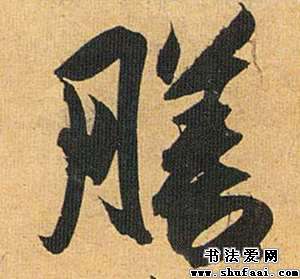 膳
书法爱网
www.shufaai.com